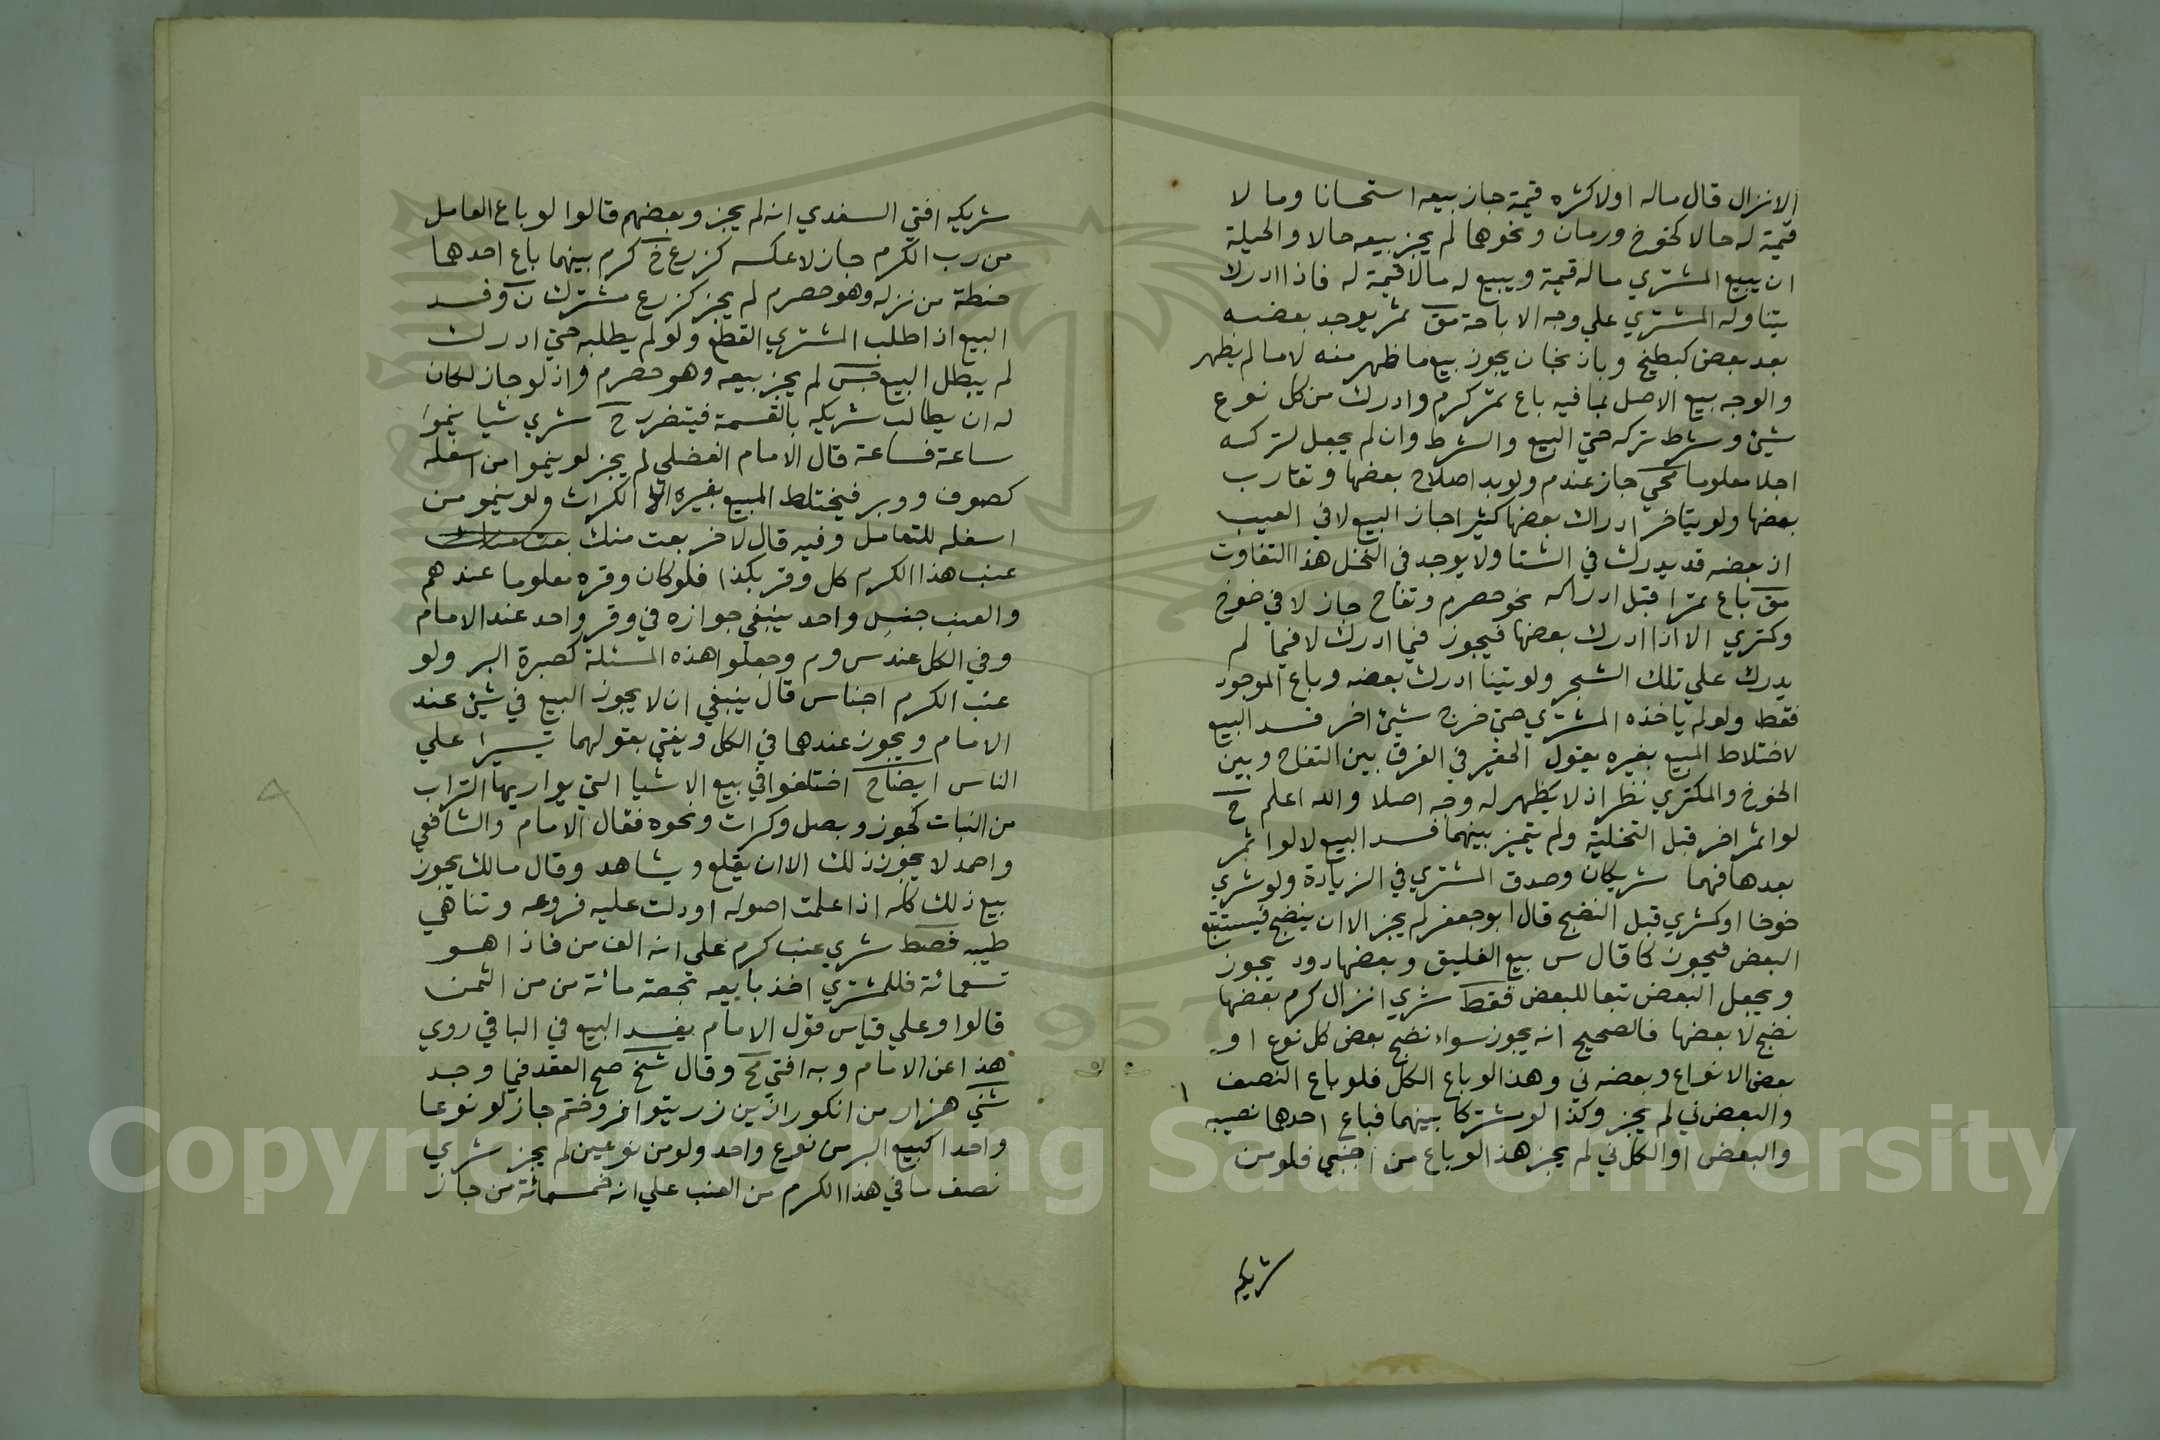 الانزال قال ماله اولاكثره قيمة جاز بيعه استحسانا وما لا
قيمة له حالا كخوخ ورمان ونحوها لم يجز بيعه حالا والحيلة
ان يبيع المشتري ماله قيمة ويبيع له مالا قيمة له فاذا ادرك
يتناوله المشتري علي وجه الاباحة مق ثمر يوجد بعضه
بعد بعض كبطيخ وباذنجان يجوز بيع ما ظهر منه لا ما لم يظهر
والوجه بيع الاصل بما فيه باع ثمر كرم وادرك من كل نوع
شيئ وشرط تركه حتي البيع والشرط وان لم يجعل لتركه
اجلا معلوما جاز عندم ولو بدا صلاح بعضها وتقارب
بعضها ولو يتاخر ادراك بعضها كثيرا جاز البيع لا في العيب
اذ بعضه قد يدرك في الشتا ولا يوجد في النخل هذا التفاوت
مق باع ثمرا قبل ادراكه نحو حصرم وتفاح جاز لا في خوخ
وكمثري الا اذا ادرك بعضها فيجوز فيما ادرك لا فيما لم
يدرك علي تلك الشجر ولو تينا ادرك بعضه وباع الموجود
فقط ولو لم ياخذه المشتري حتي خرج شيئ اخر فسد البيع
لاختلاط المبيع بغيره يقول الحقير في الفرق بين التفاح وبين
الخوخ والمكثري نظر اذ لا يظهر له وجه اصلا والله اعلم خ
لو اثمر اخر قبل التخلية ولم يتميز بينهما فسد البيع لا لو اثمر
بعدها فهما شريكان وصدق المشتري في الزيادة ولو شري
خوخا او كمثري قبل النضج قال ابو جعفر لم يجز الا ان ينضج فيستتبع
البعض فيجوز كما قال س بيع الفليق وبعضها دود يجوز
ويجعل البعض تبعا للبعض فقط شري انزال كرم بعضها
نضج لا بعضها فالصحيح انه يجوز سواء نضج بعض كل نوع او
بعض الانواع وبعضه ني وهذا لو باع الكل فلو باع النصف
والبعض ني لم يجز وكذا لو مشتركا بينهما فباع احدها نصيبه
والبعض او الكل ني لم يجز هذا لو باع من اجنبي فلو من
شريكه
شريكه افتي السغدي انه لم يجز وبعضهم قالوا لو باع العامل
من رب الكرم جاز لا عكسه كزرع خ كرم بينهما باع احدها
حنطة من نزله وهو حصرم لم يجز كزرع مشترك ن وفسد
البيع اذا طلب المشتري القطع ولو لم يطلبه حتي ادرك
لم يبطل البيع لم يجز بيعه وهو حصرم واذ لو جاز لكان
له ان يطالب شريكه بالقسمة فيتضرر ح شري شيا ينموا
ساعة فساعة قال الامام الفضلي لم يجز لو ينموا من اسفله
كصوف ووبر فيختلط المبيع بغيره الا الكراث ولو ينمو من
اسفله للتعامل وفيه قال لاخر بعت منك
عنب هذا الكرم كل وقر بكذا فلو كان وقره معلوما عندهم
والعنب جنس واحد ينبغي جوازه في وقر واحد عند الامام
وفي الكل عند س وم وجعلوا هذه المسئلة كصبرة البر ولو
عنب الكرم اجناس قال ينبغي ان لا يجوز البيع في شيئ عند
الامام ويجوز عندها في الكل ويفتي بقولهما تيسيرا علي
الناس ايضاح اختلفوا في بيع الاشيا التي يواريها التراب
من النبات كجوز وبصل وكراث ونحوه فقال الامام والشافعي
واحمد لا يجوز ذلك الا ان يقلع ويشاهد وقال مالك يجوز
بيع ذلك كله اذا علمت اصوله او دلت عليه فروعه وتناهي
طيبه فصط شري عنب كرم علي انه الف من فاذا هو
تسعمائة فللمشتري اخذ بايعه بحصة مائة من من الثمن
قالوا وعلي قياس قول الامام يفسد البيع في الباقي روي
هذا عن الامام وبه افتي وقال شخ صح العقد فيما وجد
شني هزار من انكور ازين زر بيتوا فروختم جاز لو نوعا
واحدا كبيع البر من نوع واحد ولو من نوعين لم يجز شري
نصف ما في هذا الكرم من العنب علي انه خمسمائة من جاز
Copyright © King Saud University
1957